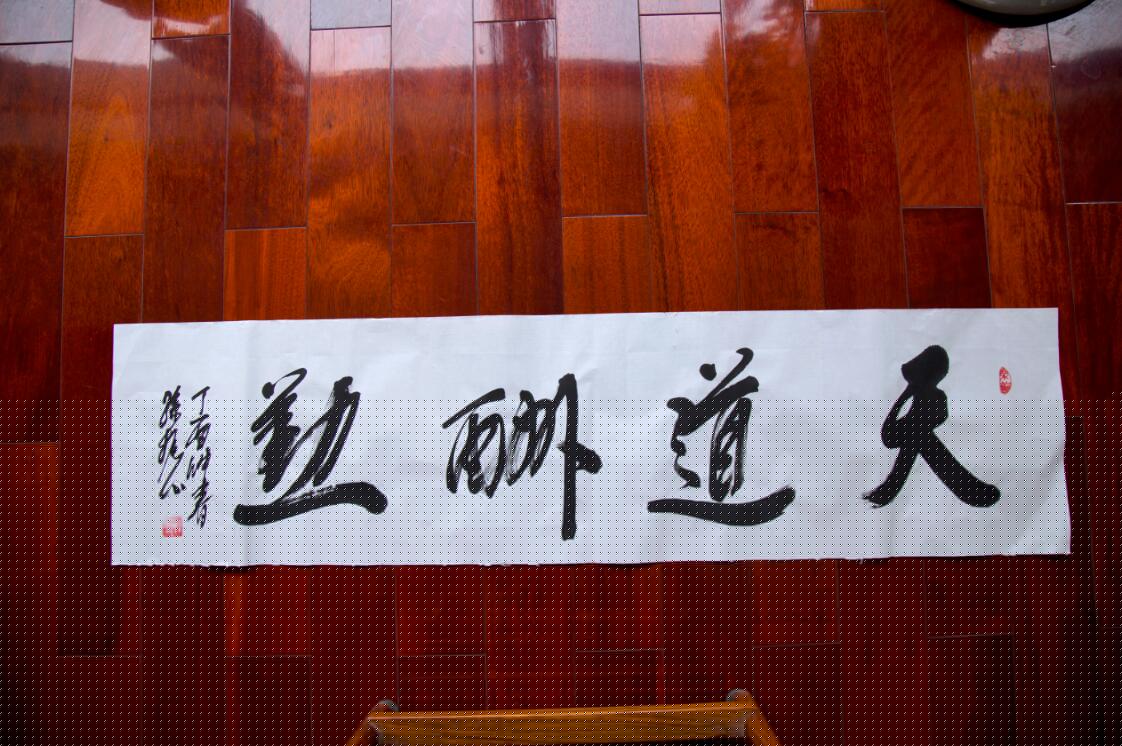 天道酬勤
丁酉時春